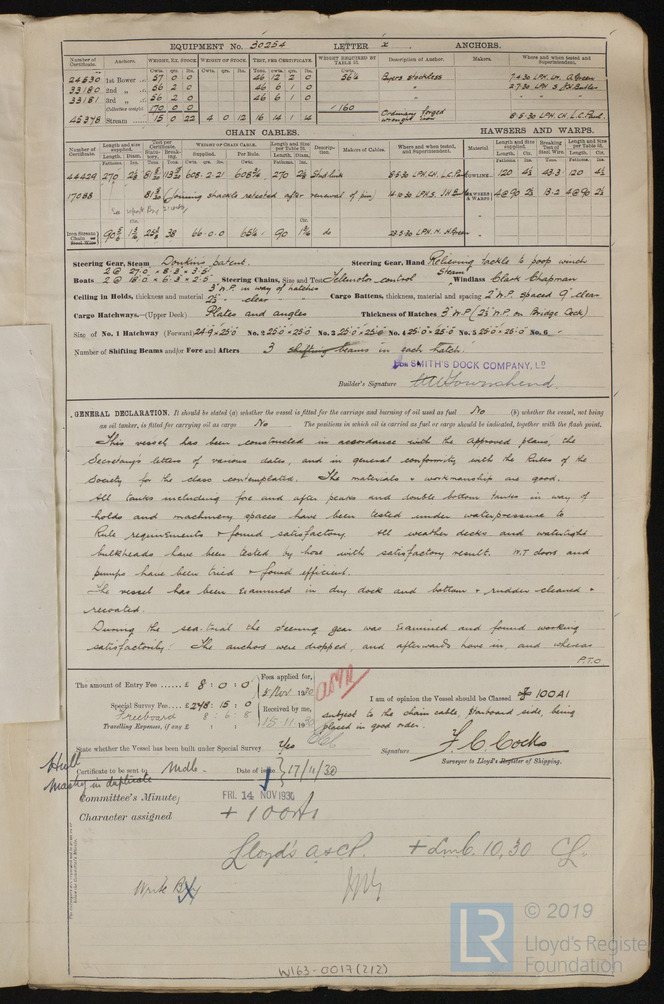 EQUIPMENT No. 30254 LETTER x ANCHORS.
Number of Certificate. Anchors. WEIGHT, EX. STOCK. WEIGHT OF STOCK. TEST, PER CERTIFICATE. WEIGHT REQUIRED BY TABLE 31. Description of Anchor. Makers. Where and when tested and Superintendent.
24530 1st Bower 57 0 0 46 12 2 0 56¼ Byers stockless 7.4.30 LPH. A. Green
33180 2nd 56 2 0 46 6 1 0
33181 3rd 56 2 0 46 6 1 0
Collective weight 170 0 0 160
45378 Stream 15 0 22 4 0 12 16 14 1 4 Ordinary forged 8.5.30 LPH. CH. L.C. Paul.
CHAIN CABLES. HAWSERS AND WARPS.
Number of Certificate. Length and size supplied. Test per Certificate. WEIGHT OF CHAIN CABLE. Length and Size per Table 31. Description. Makers of Cables. Where and when tested, and Superintendent. Material Length and Size supplied. Breaking Test of Steel Wire. Length and Size per Table 31.
44429 270 608.2.21 270 Stud link 8.5.30 LPH. CH. L.C. Paul 120 4½ 43.3 120 4½
17088 (Joining shackle retested after renewal of pin) HAWSERS & WARPS 4@90 2½ 13.2 4@90 2½
Iron Stream Chain or Steel Wire 38 66.0.0 90 do
Steering Gear, Steam Donkins patent. Steering Gear, Hand Relieving tackle to poop winch
Boats 2 @ 27.0 × 8.3 × 3.5 2 @ 18.0 × 6.3 × 2.5 Steering Chains, Size and Test Telemotor control Steam Windlass Clark Chapman
Ceiling in Holds, thickness and material 3" W.P. in way of hatches 2½" clear Cargo Battens, thickness, material and spacing 2" W.P. spaced 9" clear
Cargo Hatchways.—(Upper Deck) Plates and angles Thickness of Hatches 3" W.P. (2½" W.P. on Bridge Deck)
Size of No. 1 Hatchway (Forward) 24.9 × 25.0 No. 2 25.0 × 25.0 No. 3 25.0 × 25.0 No. 4 25.0 × 25.0 No. 5 25.0 × 25.0 No. 6
Number of Shifting Beams and/or Fore and Afters 3 shifting beams in each hatch.
FOR SMITH'S DOCK COMPANY, LD
Builder's Signature Townshend.
GENERAL DECLARATION. It should be stated (a) whether the vessel is fitted for the carriage and burning of oil used as fuel No (b) whether the vessel, not being
an oil tanker, is fitted for carrying oil as cargo No The positions in which oil is carried as fuel or cargo should be indicated, together with the flash point.
This vessel has been constructed in accordance with the approved plans, the
Secretary's letters of various dates, and in general conformity with the Rules of the
Society for the class contemplated. The materials & workmanship are good.
All tanks including fore and after peaks and double bottom tanks in way of
holds and machinery spaces have been tested under waterpressure to
Rule requirements & found satisfactory. All weather decks and watertight
bulkheads have been tested by hose with satisfactory result. W.T doors and
pumps have been tried & found efficient.
The vessel has been examined in dry dock and bottom & rudder cleaned &
recoated.
During the sea-trial the steering gear was examined and found working
satisfactorily. The anchors were dropped, and afterwards hove in, and whereas
P.T.O
The amount of Entry Fee £ 8 : 0 : 0 Fees applied for, 5/Nov 1930
Special Survey Fee £ 248 : 15 : 0 Received by me, 15.11.1930
Freeboard 8 : 6 : 8
Travelling Expenses, if any £
I am of opinion the Vessel should be Classed 100A1
subject to the chain cable, starboard side, being
placed in good order.
State whether the Vessel has been built under Special Survey Yes
Signature F. C. Cocks
Surveyor to Lloyd's Register of Shipping.
Hull
Machy in duplicate
Certificate to be sent to Mdb. Date of issue 17/11/30
Committee's Minute FRI. 14 NOV 1930
Character assigned + 100A1
Lloyd's A&CP. + LMC. 10,30 CL
Write
W163-0017 (2/2)
LR © 2019
Lloyd's Register
Foundation